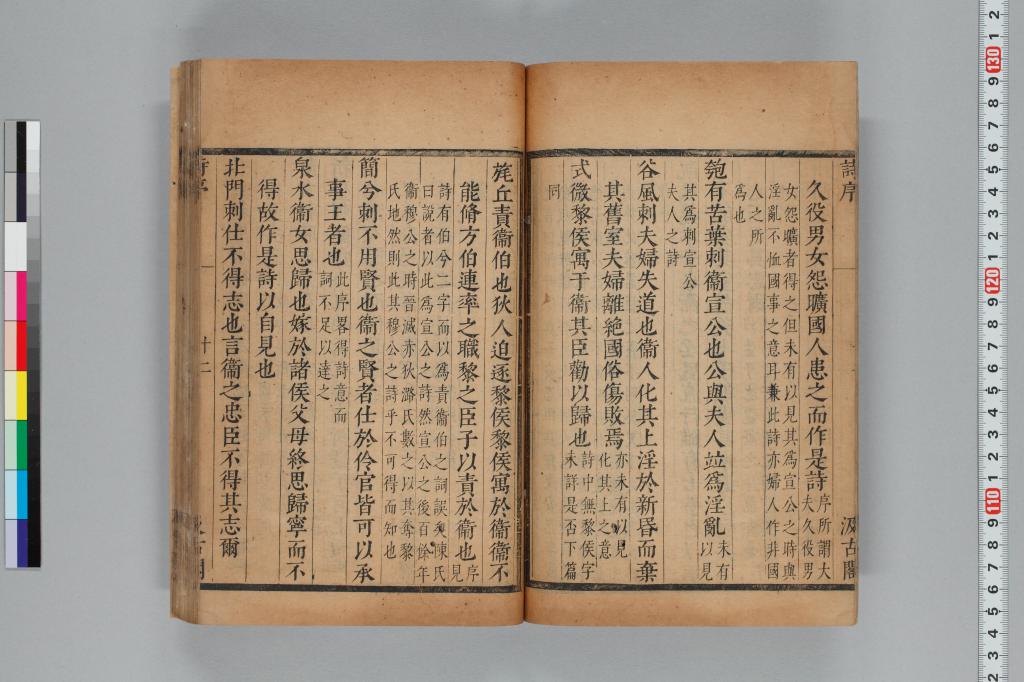 詩序
汲古閣
久役男女怨曠國人患之而作是詩序所謂大夫久役男
女怨曠者得之但未有以見其爲宣公之時與淫亂不恤國事之意耳兼此詩亦婦人作非國
人之所爲也
匏有苦葉刺衞宣公也公與夫人竝爲淫亂未有以見
其爲刺宣公夫人之詩
谷風刺夫婦失道也衞人化其上淫於新昏而棄
其舊室夫婦離絶國俗傷敗焉亦未有以見化其上之意
式微黎侯寓于衞其臣勸以歸也詩中無黎侯字未詳是否下篇
同
旄丘責衞伯也狄人迫逐黎侯黎侯寓於衞衞不
能脩方伯連率之職黎之臣子以責於衞也序見
詩有伯兮二字而以爲責衞伯之詞誤矣陳氏曰說者以此爲宣公之詩然宣公之後百餘年
衞穆公之時晉滅赤狄潞氏數之以其奪黎氏地然則此其穆公之詩乎不可得而知也
簡兮刺不用賢也衞之賢者仕於伶官皆可以承
事王者也此序畧得詩意而詞不足以達之
泉水衞女思歸也嫁於諸侯父母終思歸寧而不
得故作是詩以自見也
北門刺仕不得志也言衞之忠臣不得其志爾
詩序
十二
130
120
110